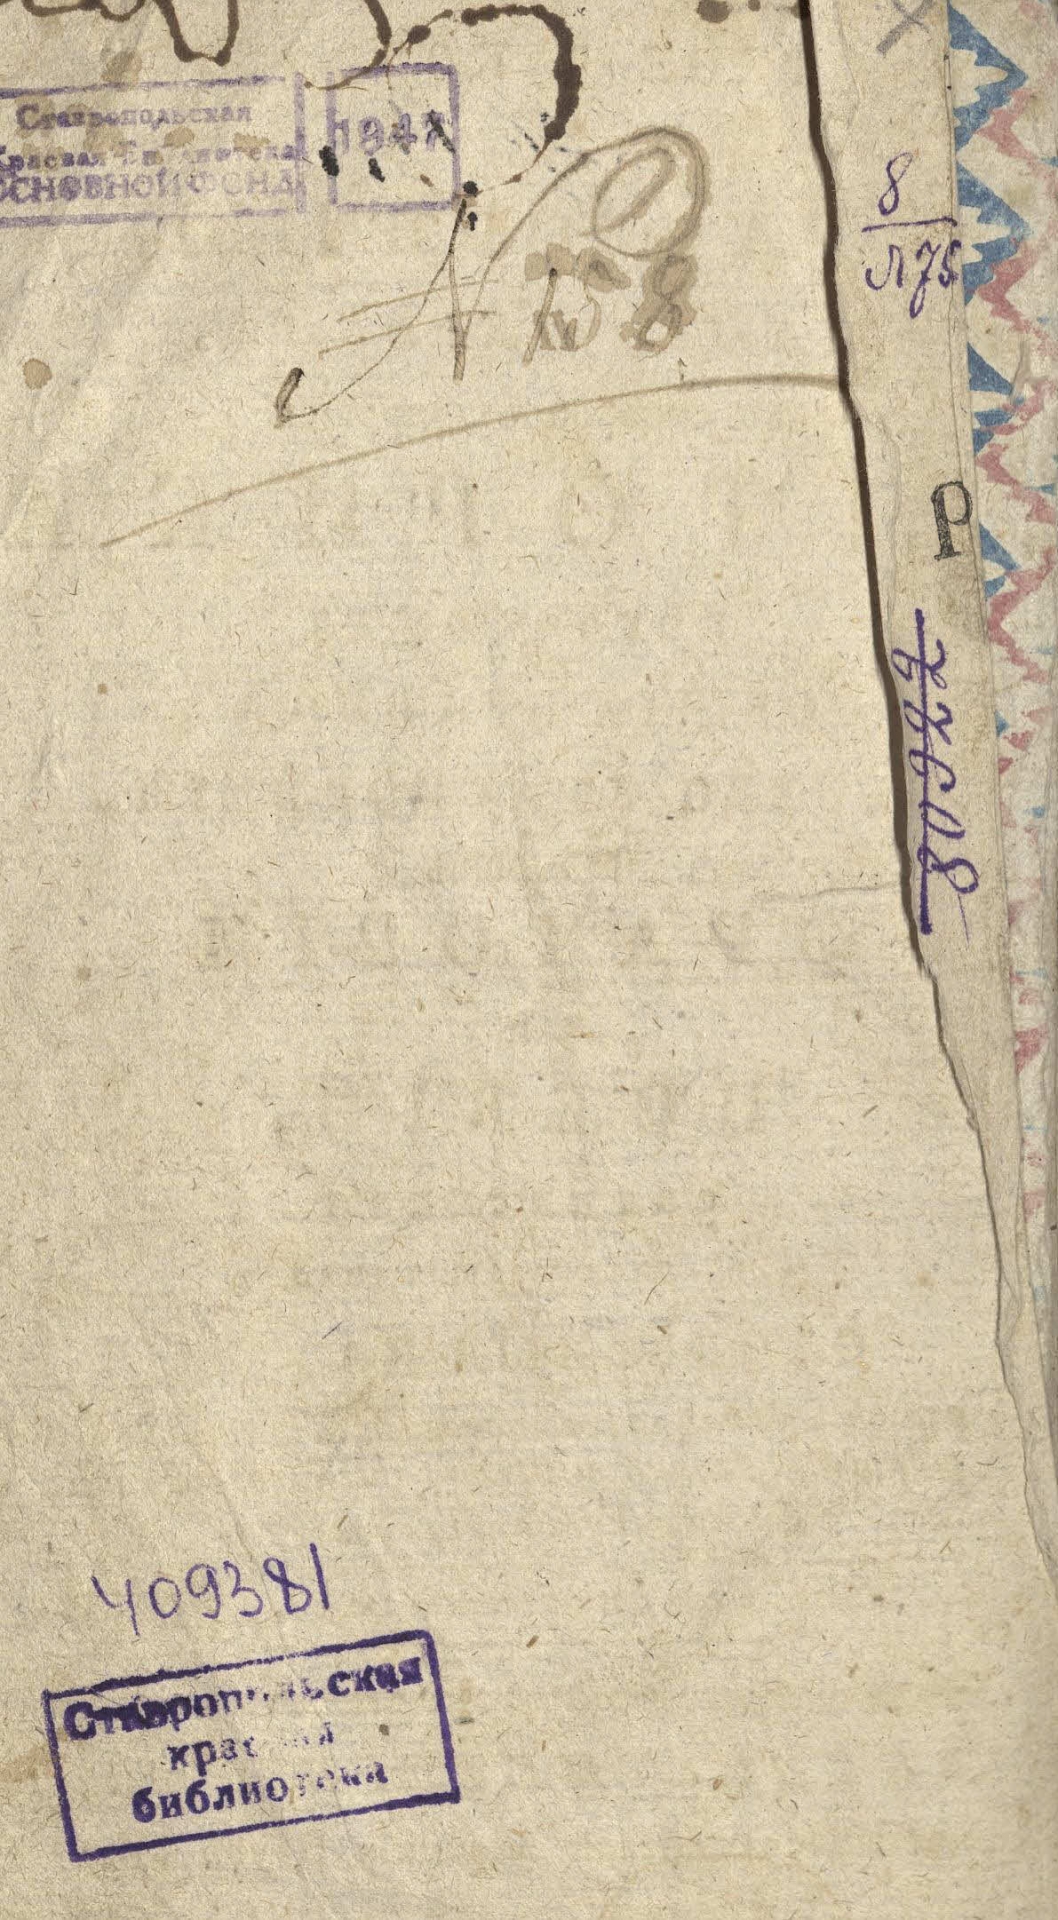 Ставропольская
Краевая Библиотека
ОСНОВНОЙ ФОНД
1947
№ 158
8
Л75
Р
409381
Ставропольская
краевая
библиотека